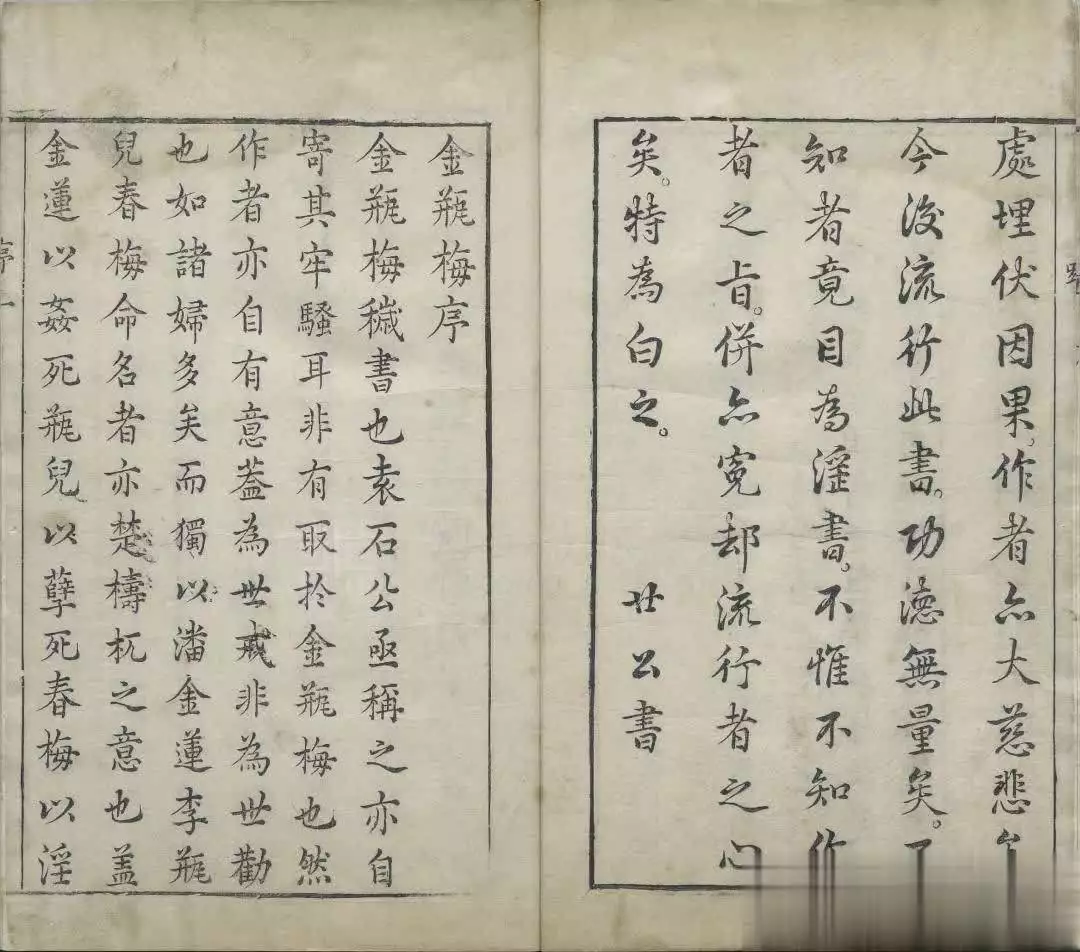 處埋伏因果。作者亦大慈悲
今後流行此書。功德無量矣。
知者竟目為淫書。不惟不知作
者之旨。併亦冤却流行者之心
矣。特為白之。
廿公書
金瓶梅序
金瓶梅穢書也袁石公亟稱之亦自
寄其牢騷耳非有取於金瓶梅也然
作者亦自有意葢為世戒非為世勸
也如諸婦多矣而獨以潘金蓮李瓶
兒春梅命名者亦楚檮杌之意也盖
金蓮以姦死瓶兒以孽死春梅以淫